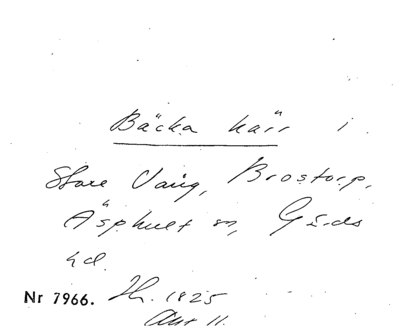 Bäcka kärr i
Store Vång, Brostorp,
Äsphult sn, Gärds
hd.
Nr 7966. Th. 1825
Akt 11.